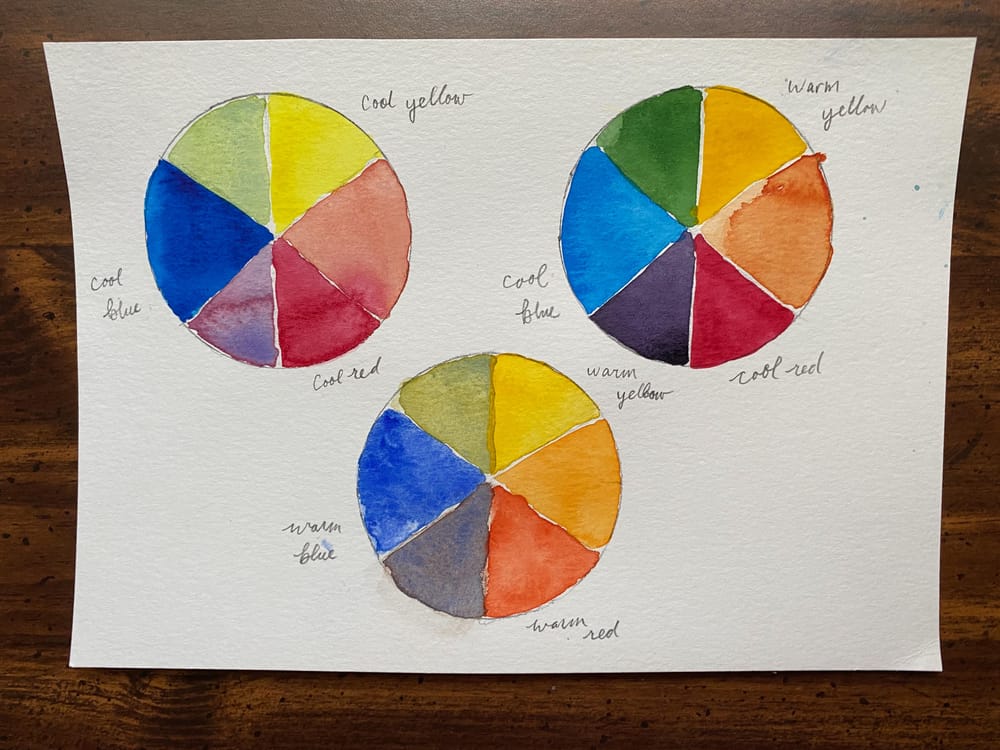 Cool yellow
cool
blue
Cool red
warm
yellow
cool
blue
cool red
warm
yellow
warm
blue
warm
red